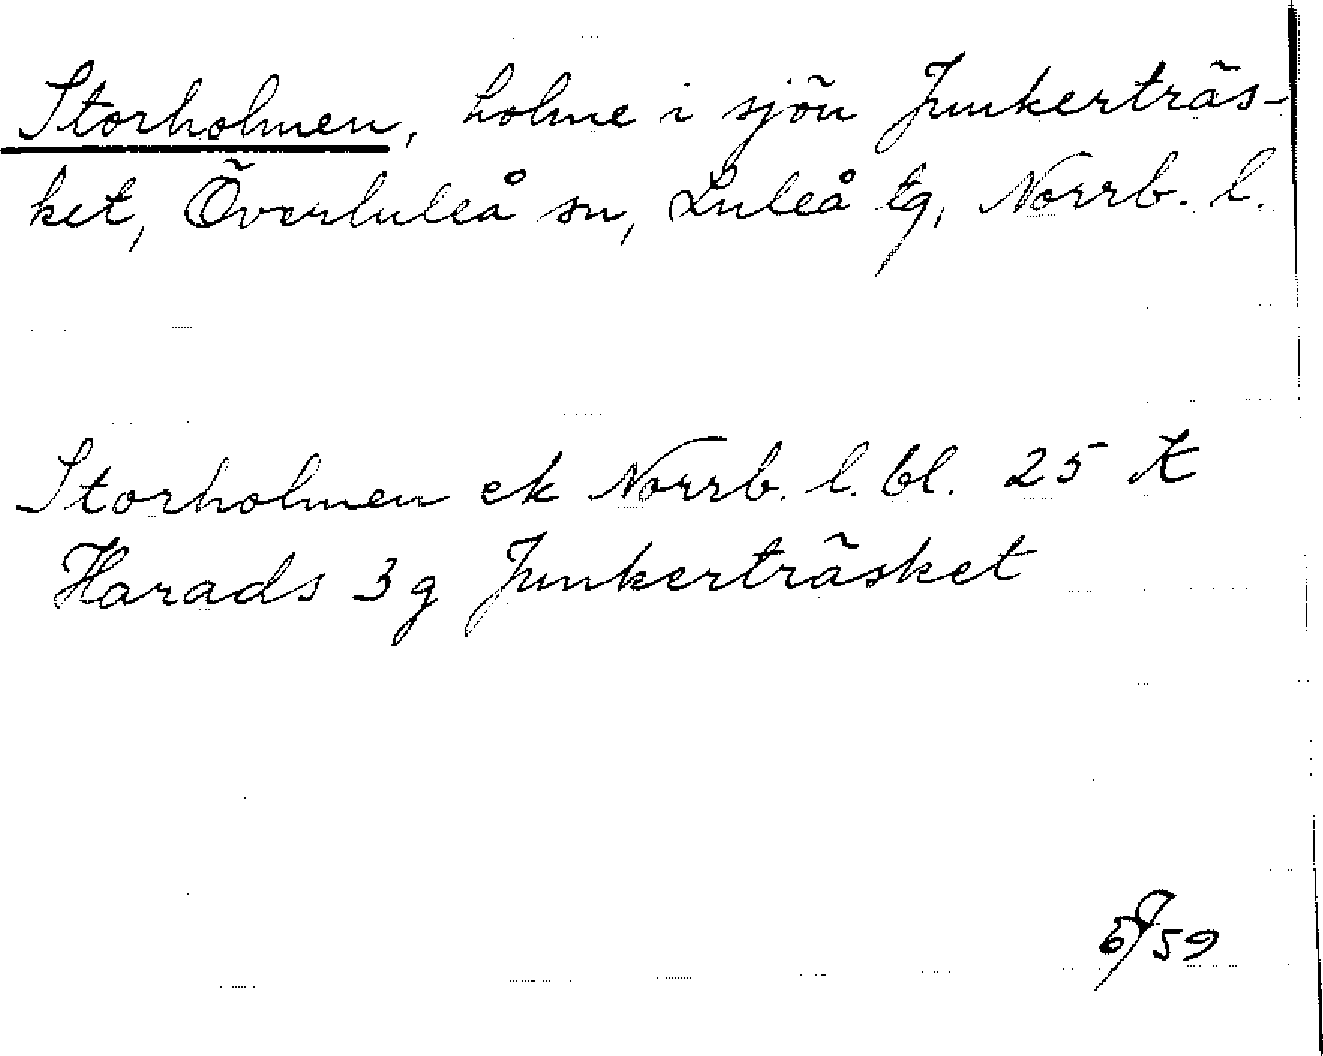 Storholmen, holme i sjön Junkerträs-
ket, Överluleå sn, Luleå tg, Norrb. l.
Storholmen ek Norrb. l. bl. 25
Harads 3 g Junkerträsket
59